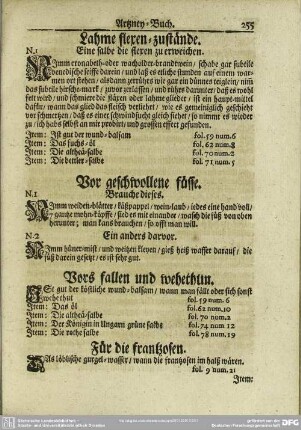 Artzney-Buch. 255
Lahme flexen-zustände.
Eine salbe die flexen zu erweichen.
N.1
Nimm cronabeth-oder wacholder-brandtwein / schabe gar subtile
venedische seiffe darein / und laß es etliche stunden auf einem war-
men ort stehen / alsdann zerrühre es wie gar ein dünnes teiglein / nim
das subtile hirsch-marck / zuvor zerlassen / und rühres darunter / daß es wohl
feit werd / und schmiere die flaxen oder lahme glieder / ist ein haupt-mittel
darfür / wann das glied das fleisch verliehrt / wie es gemeiniglich geschieht
vor schmertzen / daß es einer schwindsucht gleich siehet / so nimmt es wieder
zu / ich habs selbst an mir probirt / und grossen effect gefunden.
Item: Ist gut der wund-balsam fol. 59 num. 6
Item: Das fuchs-öl fol. 62 num. 8
Item: Die altheä-salbe fol. 70 num. 2
Item: Die bettler-salbe fol. 71 num. 5
Vor geschwollene füsse.
N.1 Brauche dieses.
Nimm weiden-blätter / käßpappel / wein-laub / iedes eine hand voll /
7 gantze mehn-köpffe / sied es mit einander / wasch die füß von oben
herunter; man kans brauchen / so offt man will.
N.2 Ein anders darvor.
Nimm hünermist / und weitzen kleyen / gieß heiß wasser darauf / die
füß darein gesetzt / es ist sehr gut.
Vors fallen und wehethun.
Ist gut der köstliche wund-balsam / wann man fällt oder sich sonst
wehe thut fol. 59 num. 6
Item: Das öl fol. 62 num. 10
Item: Die altheä-salbe fol. 70 num. 2
Item: Der Königin in Ungarn grüne salbe fol. 74 num. 12
Item: Die rothe salbe fol. 78 num. 19
Für die frantzosen.
Das löbliche gurgel-wasser / wann die frantzosen im halß wären.
fol. 9 num. 21
Item: